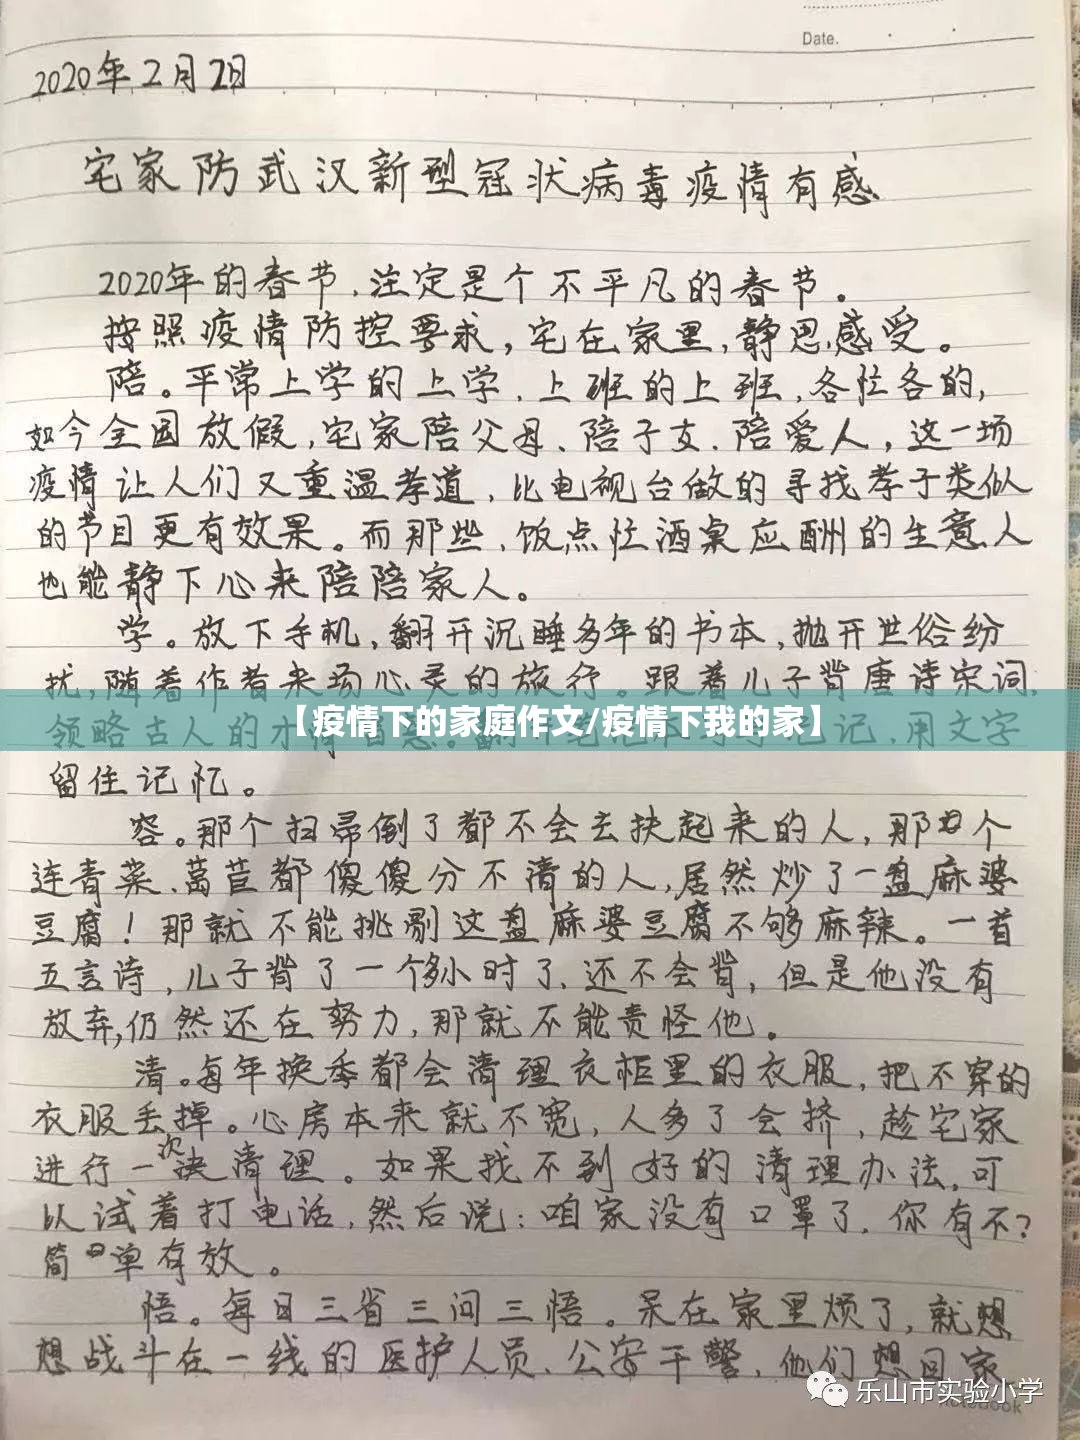 Date.
2020年2月2日
宅家防武汉新型冠状病毒疫情有感
2020年的春节,注定是个不平凡的春节。
按照疫情防控要求,宅在家里,静思感受。
陪。平常上学的上学,上班的上班,各忙各的,
如今全国放假,宅家陪父母、陪子女、陪爱人,这一场
疫情让人们又重温孝道,比电视台做的寻找孝子类似
的节目更有效果。而那些,饭点忙酒桌应酬的生意人
也能静下心来陪陪家人。
学。放下手机,翻开沉睡多年的书本,抛开世俗纷
扰,随着作者来场心灵的旅行。跟着儿子背唐诗宋词,
领略古人的才
【疫情下的家庭作文/疫情下我的家】
记,用文字
留住记忆。
容。那个扫帚倒了都不会去扶起来的人,那个
连青菜、莴苣都傻傻分不清的人,居然炒了一盘麻婆
豆腐!那就不能挑剔这盘麻婆豆腐不够麻辣。一首
五言诗,儿子背了一个多小时了,还不会背,但是他没有
放弃,仍然还在努力,那就不能责怪他。
清。每年换季都会清理衣柜里的衣服,把不穿的
衣服丢掉。心房本来就不宽,人多了会挤,趁宅家
进行一次清理。如果找不到好的清理办法,可
以试着打电话,然后说:咱家没有口罩了,你有不?
简单有效。
悟。每日三省三问三悟。呆在家里烦了,就想
想战斗在一线的医护人员、公安干警,他们想回家
乐山市实验小学
Notebook